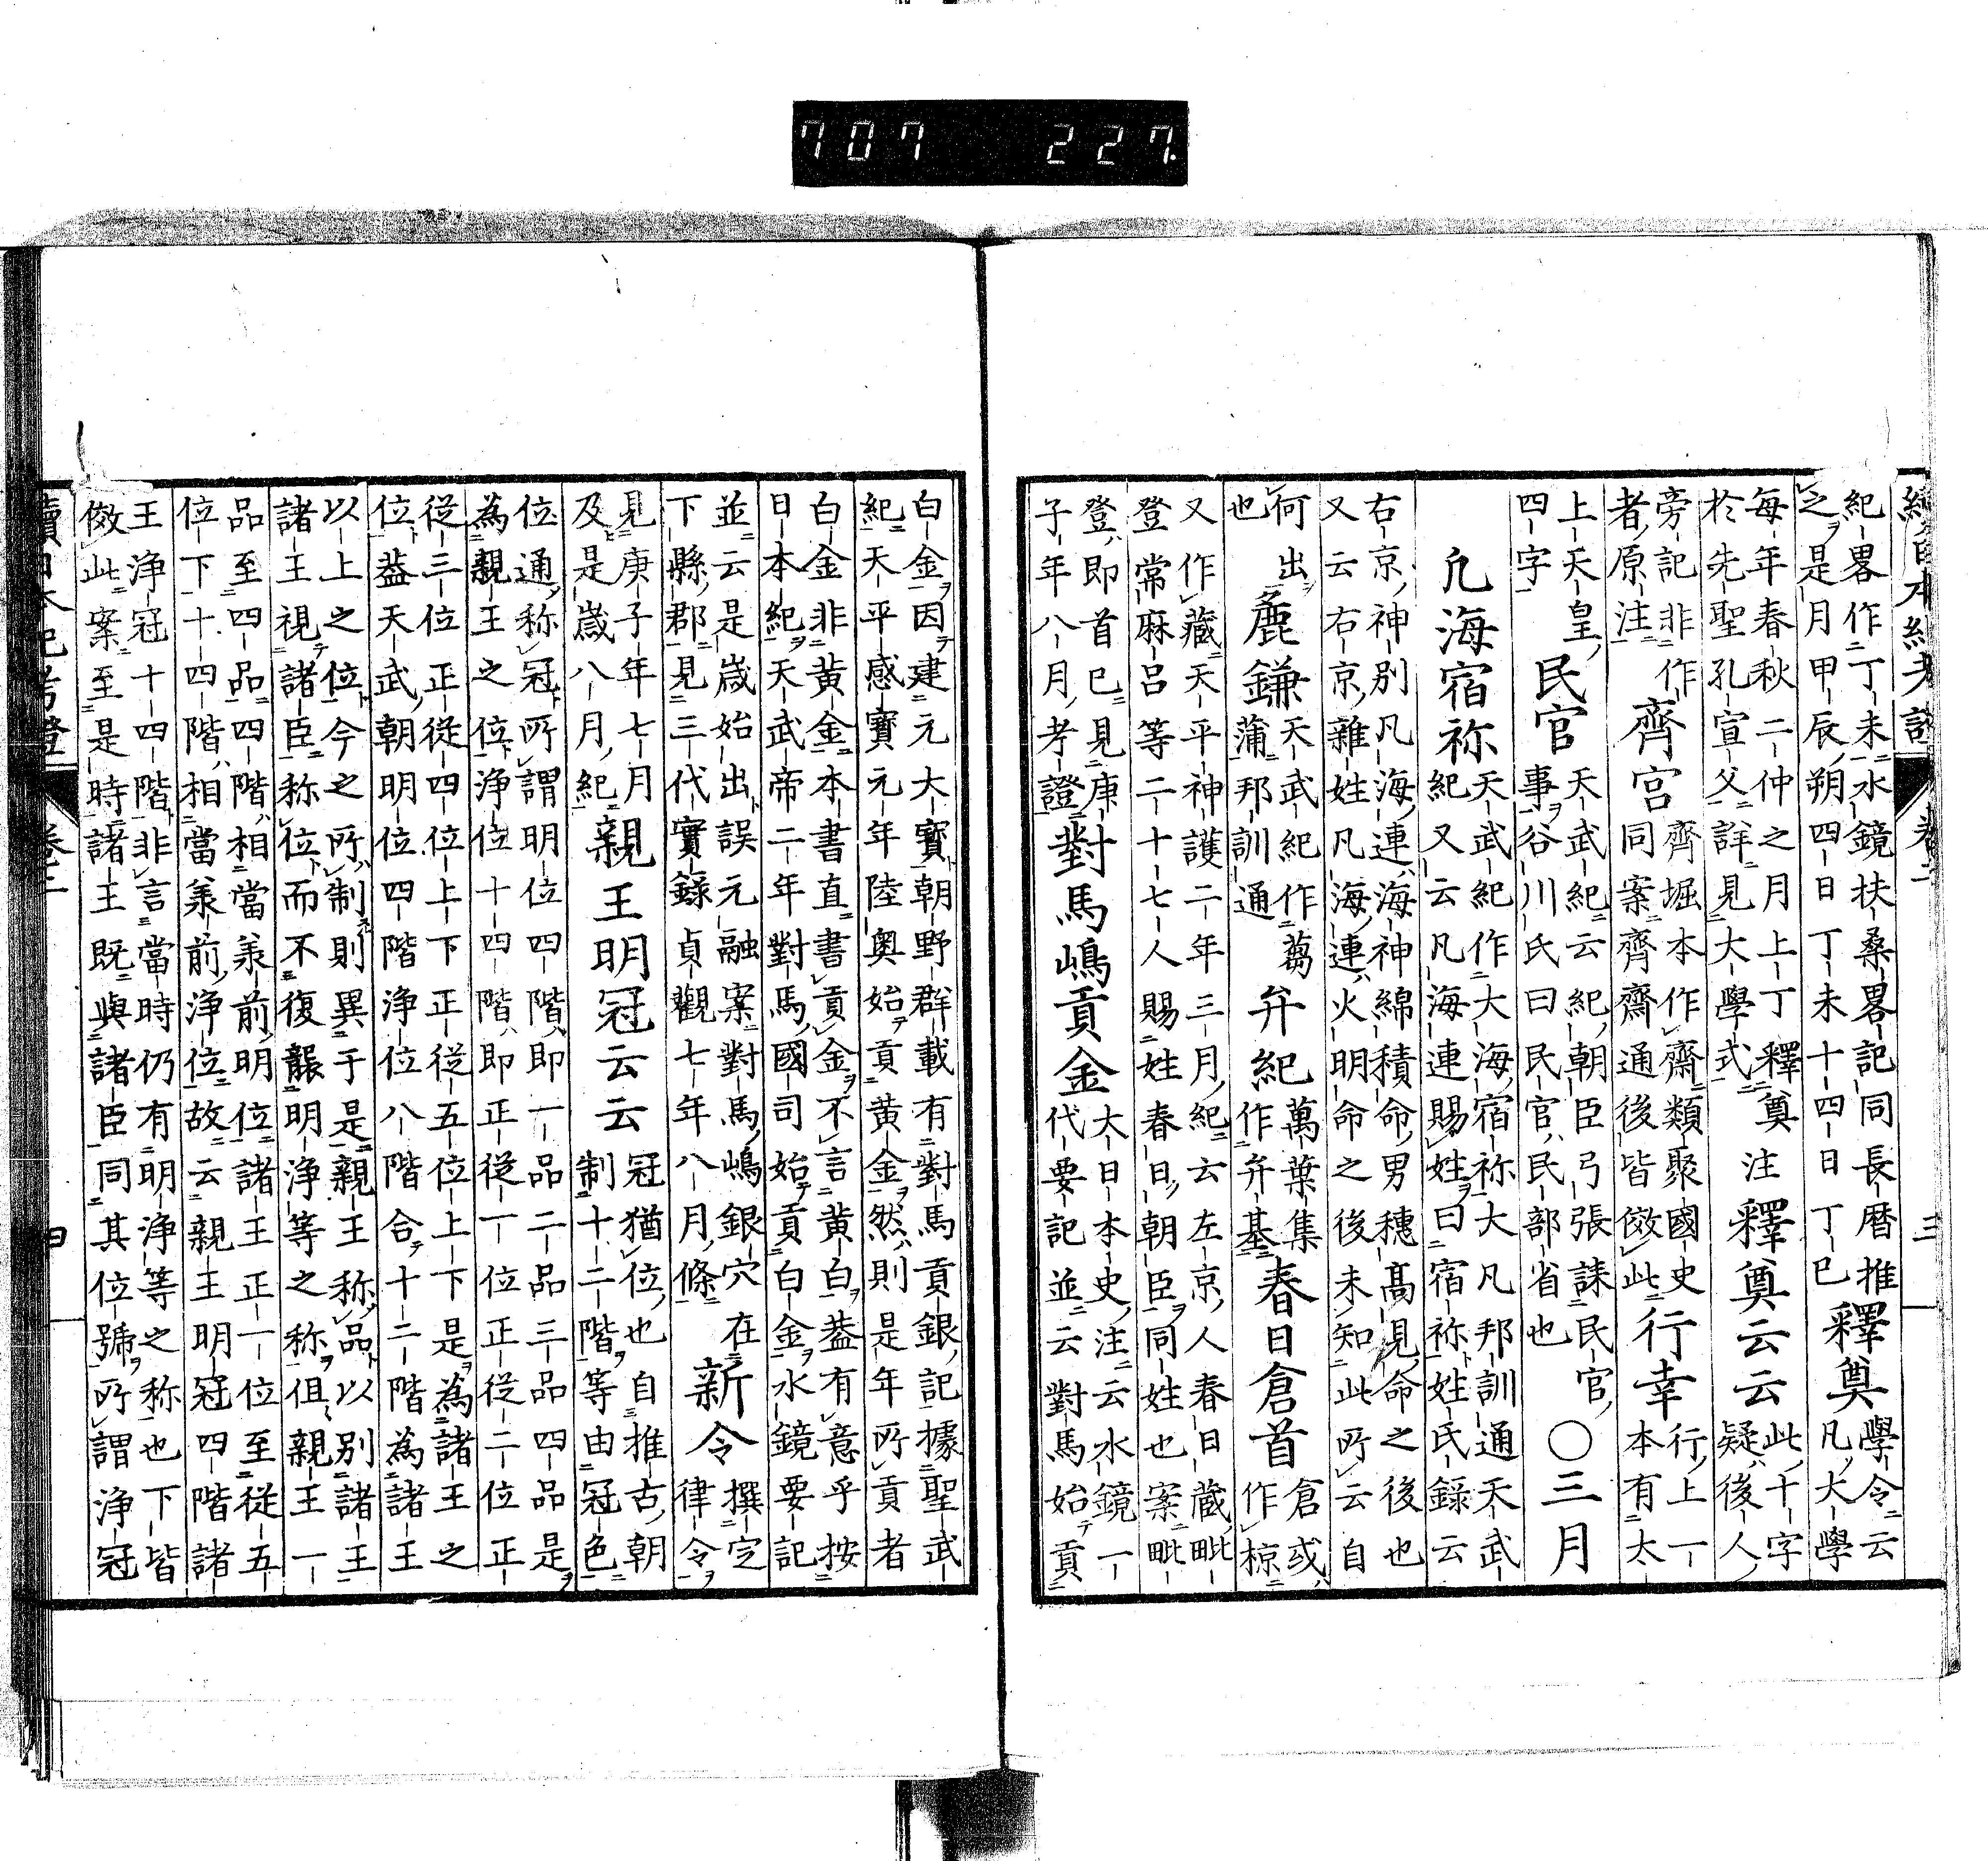 707 227.
續日本紀考證
卷二
三
紀畧作丁未水鏡扶桑畧記同長曆推
之是月甲辰朔四日丁未十四日丁巳釋奠學令云
凡大學
每年春秋二仲之月上丁釋奠
於先聖孔宣父詳見大學式注釋奠云云此十字
疑後人
旁記非作
者原注齊宮齊堀本作齋類聚國史
同案齊齋通後皆倣此行幸行上一
本有太
上天皇
四字民官天武紀云紀朝臣弓張誄民官
事谷川氏曰民官民部省也〇三月
凡海宿祢天武紀作大海宿祢大凡邦訓通天武
紀又云凡海連賜姓曰宿祢姓氏錄云
右京神別凡海連海神綿積命男穗高見命之後也
又云右京雜姓凡海連火明命之後未知此所云自
何出
也麁鎌天武紀作蒭
蒲邦訓通弁紀萬葉集
作弁基春日倉首倉或
作椋
又作藏天平神護二年三月紀云左京人春日藏毗
登常麻呂等二十七人賜姓春日朝臣同姓也案毗
登即首已見庚
子年八月考證對馬嶋貢金大日本史注云水鏡一
代要記並云對馬始貢
白金因建元大寶朝野群載有對馬貢銀記據聖武
紀天平感寶元年陸奧始貢黃金然則是年所貢者
白金非黃金本書直書貢金不言黃白葢有意乎按
日本紀天武帝二年對馬國司始貢白金水鏡要記
並云是歲始出誤元融案對馬嶋銀穴在
下縣郡見三代實錄貞觀七年八月條新令撰定
律令
見庚子年七月
及是歲八月紀親王明冠云云冠猶位也自推古朝
制十二階等由冠色
位通稱冠所謂明位四階即一品二品三品四品是
為親王之位淨位十四階即正從一位正從二位正
從三位正從四位上下正從五位上下是為諸王之
位葢天武朝明位四階淨位八階合十二階為諸王
以上之位今之所制則異于是親王称品以別諸王
諸王視諸臣称位而不復襲明淨等之称但親王一
品至四品四階相當羕前明位諸王正一位至從五
位下十四階相當羕前淨位故云親王明冠四階諸
王淨冠十四階非言當時仍有明淨等之称也下皆
倣此案至是時諸王既與諸臣同其位號所謂淨冠
續日本紀考證
卷二
四